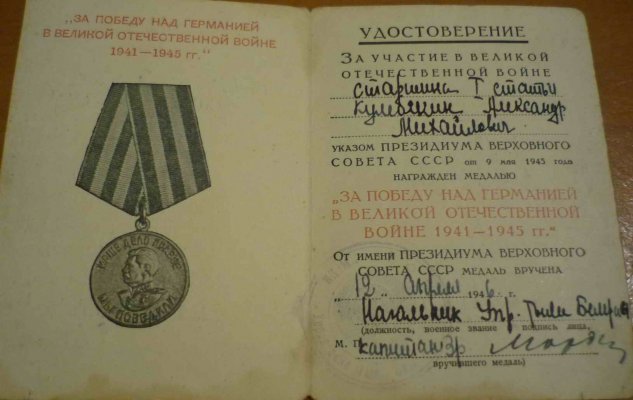 „ЗА ПОБЕДУ НАД ГЕРМАНИЕЙ
В ВЕЛИКОЙ ОТЕЧЕСТВЕННОЙ ВОЙНЕ
1941—1945 гг.“
НАШЕ ДЕЛО ПРАВОЕ
МЫ ПОБЕДИЛИ
УДОСТОВЕРЕНИЕ
ЗА УЧАСТИЕ В ВЕЛИКОЙ
ОТЕЧЕСТВЕННОЙ ВОЙНЕ
старшина I статьи
Кулебякин Александр
Михайлович
УКАЗОМ ПРЕЗИДИУМА ВЕРХОВНОГО
СОВЕТА СССР от 9 мая 1945 года
НАГРАЖДЕН МЕДАЛЬЮ
„ЗА ПОБЕДУ НАД ГЕРМАНИЕЙ
В ВЕЛИКОЙ ОТЕЧЕСТВЕННОЙ
ВОЙНЕ 1941—1945 гг.“
ОТ ИМЕНИ ПРЕЗИДИУМА ВЕРХОВНОГО
СОВЕТА СССР МЕДАЛЬ ВРУЧЕНА
„12“ апреля 1946 г.
Начальник Упр.
(должность, военное звание и подпись лица,
М. П. капитан
вручившего медаль)